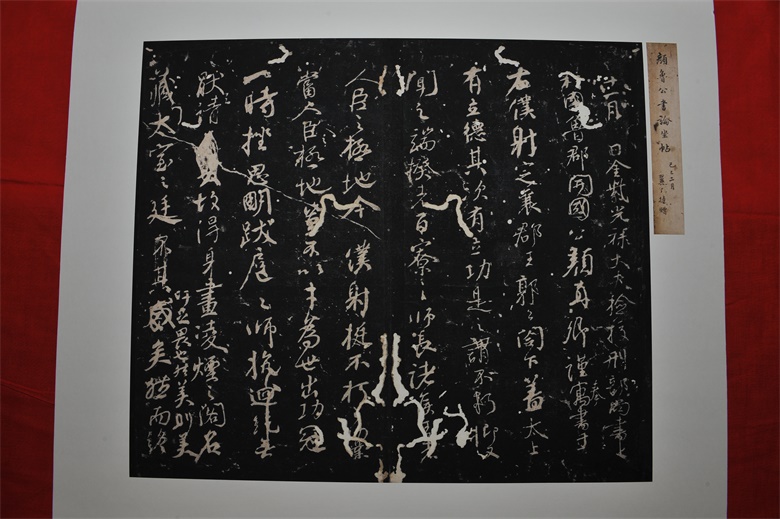 顏魯公書論坐帖
二月
十一月 日金紫光祿大夫檢挍刑部尚書上
柱國魯郡開國公顏真卿謹奉書于
右僕射定襄郡王郭公閤下蓋太上
有立德其次有立功是之謂不朽抑又
聞之端揆者百寮之師長諸侯王者
人臣之極地今僕射挺不朽之功業
當人臣極地豈不以才為世出功冠
一時挫思明跋扈之師抗迴紇無
猒之請故得身畫凌煙之閣名
藏太室之廷
吁足畏也然美則美
矣然而終